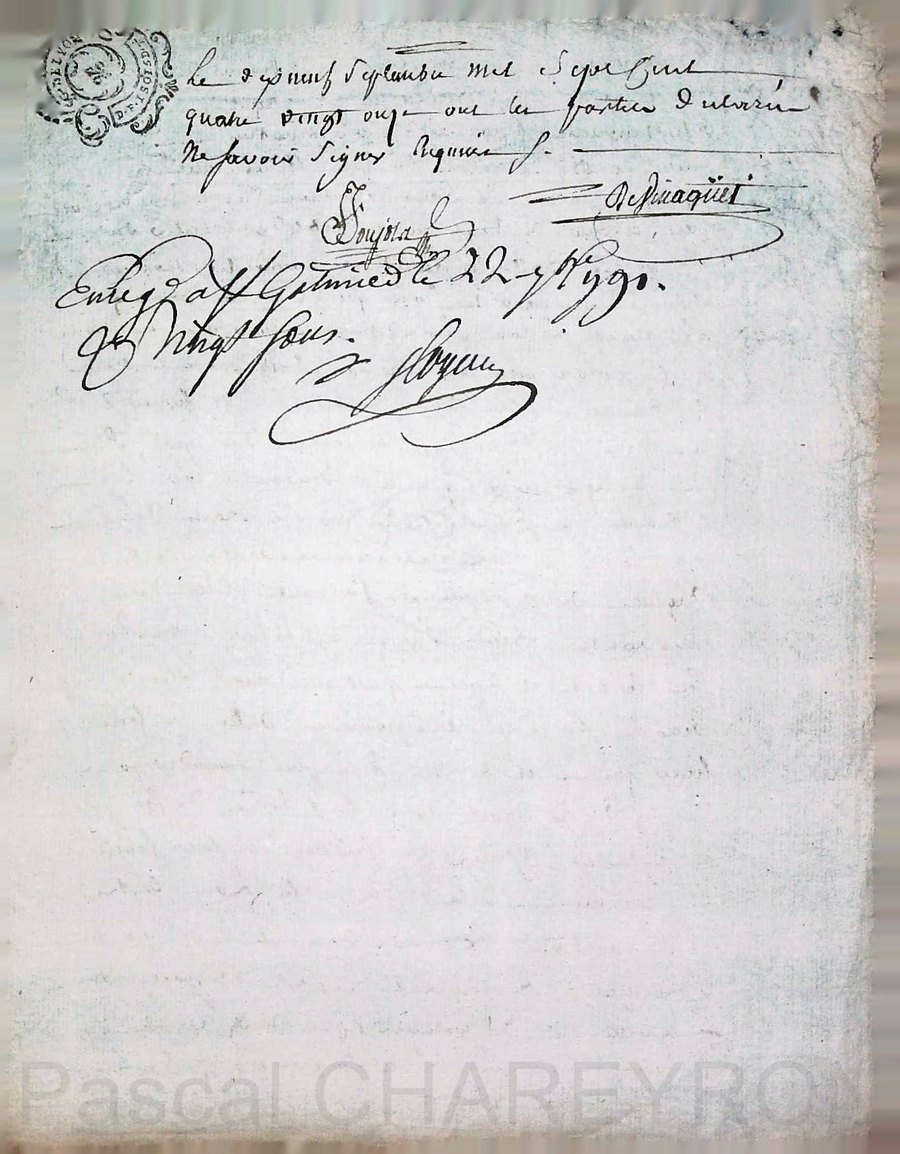 LYON
Le dix neuf septembre mil sept cent
quatre vingt onze ont les parties declaré
ne savoir signer requises
Enreg à St Galmier le 22 7bre 1791.
vingt sous.
Pascal CHAREYRO